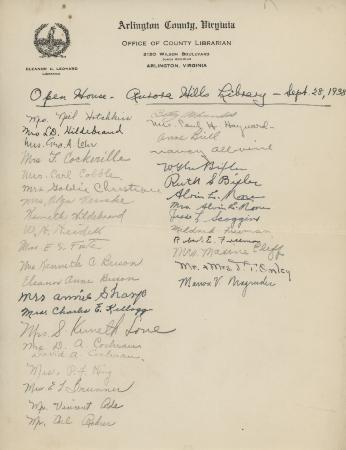 Arlington County, Virginia
OFFICE OF COUNTY LIBRARIAN
2120 WILSON BOULEVARD
ARLINGTON, VIRGINIA
ELEANOR C. LEONARD
LIBRARIAN
Open House - Aurora Hills Library - Sept. 28, 1938
Mrs. Neil Hotchkiss
Mrs. D. Hildebrand
Mrs. Eva A. Lehr
Mrs. F. Cockerille
Mrs. Carl Cobble
Mrs Goldie Christian
Mrs. Olga
Kenneth Hildebrand
W. H.
Mrs. E. S. Foote
Mrs Kenneth C. Beeson
Eleanor Anne Beeson
Mrs Annie Sharp
Mrs. Charles E. Kellogg
Mrs. S. Kenneth Love
Mrs D. A. Cochran
David A. Cochran
Mrs. P. F. King
Mrs. E. L. Brunner
Mrs. Vincent
Mrs.
Betty
Mrs. Carl H. Hayward
Anne Bill
Nancy
Ruth S Bixler
Alvin L. More
Mrs. Alvin L. More
Jesse L. Scoggins
Mildred Freeman
Robert E. Freeman
Mrs. Maxine
Mr. & Mrs
Marion V. Magruder